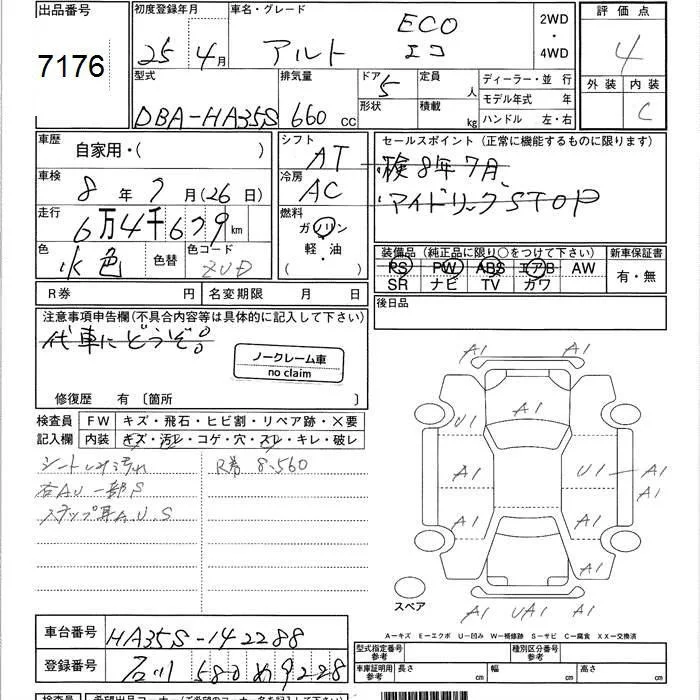 出品番号 初度登録年月 車名・グレード ECO 2WD 評価点
7176 25年 4月 アルト エコ ・ 4WD 4
型式 排気量 ドア 5 定員 人 ディーラー・並行 外装 内装
DBA-HA35S 660cc 形状 積載 kg モデル年式 年 C
ハンドル 左・右
車歴 自家用・( ) シフト AT セールスポイント(正常に機能するものに限ります)
車検 8年 7月(26日) 冷房 AC ・検8年7月
・アイドリックSTOP
走行 6万4千679km 燃料 ガソリン
軽・油
( )
色 水色 色替 色コード ZUD 装備品(純正品に限り○をつけて下さい) 新車保証書
PS PW ABS エアB AW 有・無
SR ナビ TV カワ
R券 円 名変期限 月 日 後日品
注意事項申告欄(不具合内容等は具体的に記入して下さい)
代車にどうぞ。
ノークレーム車
no claim
修復歴 有 〔箇所 〕
検査員 FW キズ・飛石・ヒビ割・リペア跡・×要
記入欄 内装 キズ・汚レ・コゲ・穴・スレ・キレ・破レ
シートしみ汚れ R券 8,560
右AU一部S
ステップ耳A.U.S
A1 A1
U1 A1 A1
A1 U1 A1
A1
A1 A1
A1 A1
スペア A1 UA1 A1
A-キズ E-エクボ U-凹み W-補修跡 S-サビ C-腐食 XX-交換済
車台番号 HA35S-142288
登録番号 石川 580 め 9228
型式指定番号 参考 種別区分番号 参考
車庫証明用 参考 長さ cm 幅 cm 高さ cm
検査員 希望出品コーナー(ご希望のコーナー名を記入下さい)